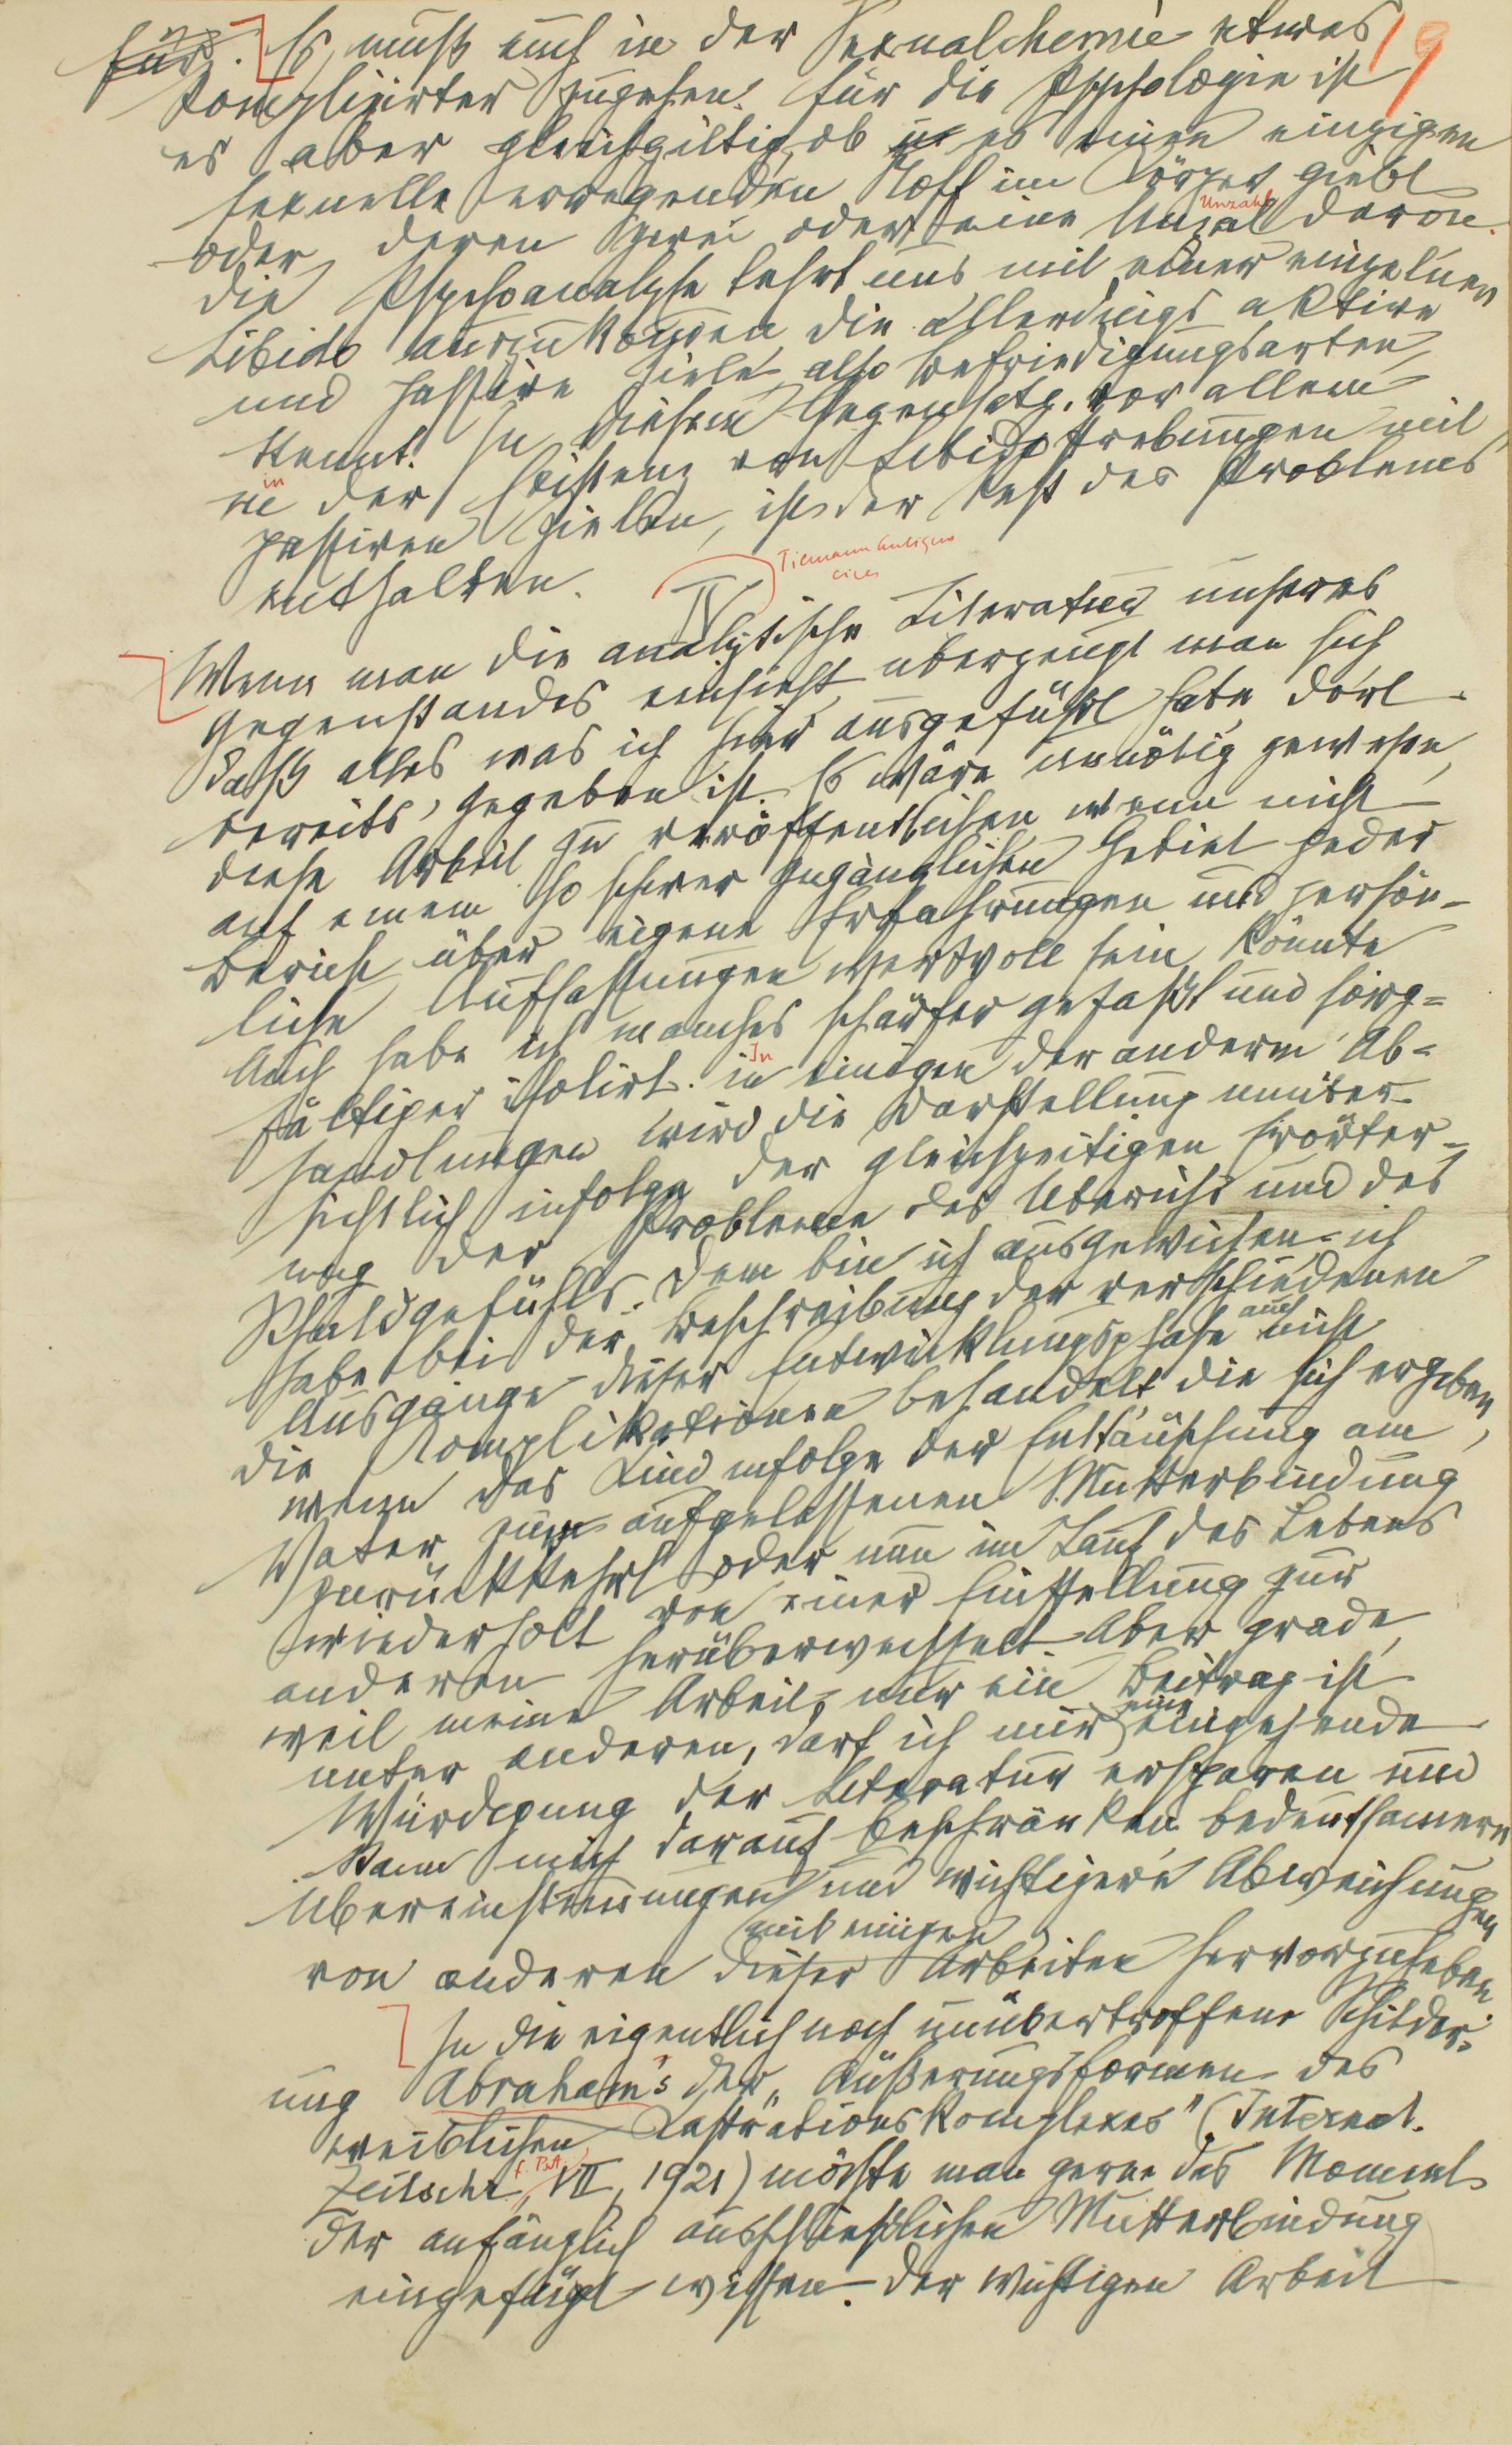 für. Es muß auch in der Sexualchemie etwas
komplizirter zugehen. Für die Psychologie ist
es aber gleichgiltig, ob es einen einzigen
sexuelle erregenden Stoff im Körper giebt
oder deren zwei oder eine Unzal davon.
Unzahl
Die Psychoanalyse lehrt uns mit einer einzelnen
Libido auszukommen, die allerdings aktive
und passive Ziele, also Befriedigungsarten,
kennt. In diesem Gegensatz, vor allem
in der Existenz von Libidostrebungen mit
in
passiven Zielen, ist der Rest des Problems
enthalten.
IV
Wenn man die analytische Literatur unseres
Gegenstandes einsieht, überzeugt man sich
daß alles was ich hier ausgeführt habe, dort
bereits gegeben ist. Es wäre unnötig gewesen,
diese Arbeit zu veröffentlichen, wenn nicht
auf einem so schwer zugänglichen Gebiet jeder
Bericht über eigene Erfahrungen und persön-
liche Auffassungen wertvoll sein könnte
Auch habe ich manches schärfer gefaßt und sorg=
fältiger isolirt. in einigen der anderen Ab=
In
handlungen wird die Darstellung unüber-
sichtlich infolge der gleichzeitigen Erörter-
ung der Probleme des Überichs und des
Schuldgefühls. Dem bin ich ausgewichen, ich
habe bei der Beschreibung der verschiedenen
Ausgänge dieser Entwicklungsphase auch nicht
die Komplikationen behandelt, die sich ergeben,
wenn das Kind infolge der Enttäuschung am
Vater zur aufgelassenen Mutterbindung
zurückkehrt oder nun im Lauf des Lebens
wiederholt von einer Einstellung zur
anderen herüberwechselt. Aber grade,
weil meine Arbeit nur ein Beitrag ist
unter anderen, darf ich mir eine eingehende
Würdigung der Literatur ersparen und
kann mich darauf beschränken bedeutsamere
Übereinstimmungen mit einigen und wichtigere Abweichungen
von anderen dieser Arbeiten hervorzuheben.
In die eigentlich noch unübertroffene Schilder-
ung Abraham's der „Äußerungsformen des
weiblichen Kastrationskomplexes" (Internat.
Zeitschr. VII, 1921) möchte man gerne das Moment
der anfänglich ausschließlichen Mutterbindung
eingefügt wissen. Der wichtigen Arbeit
9